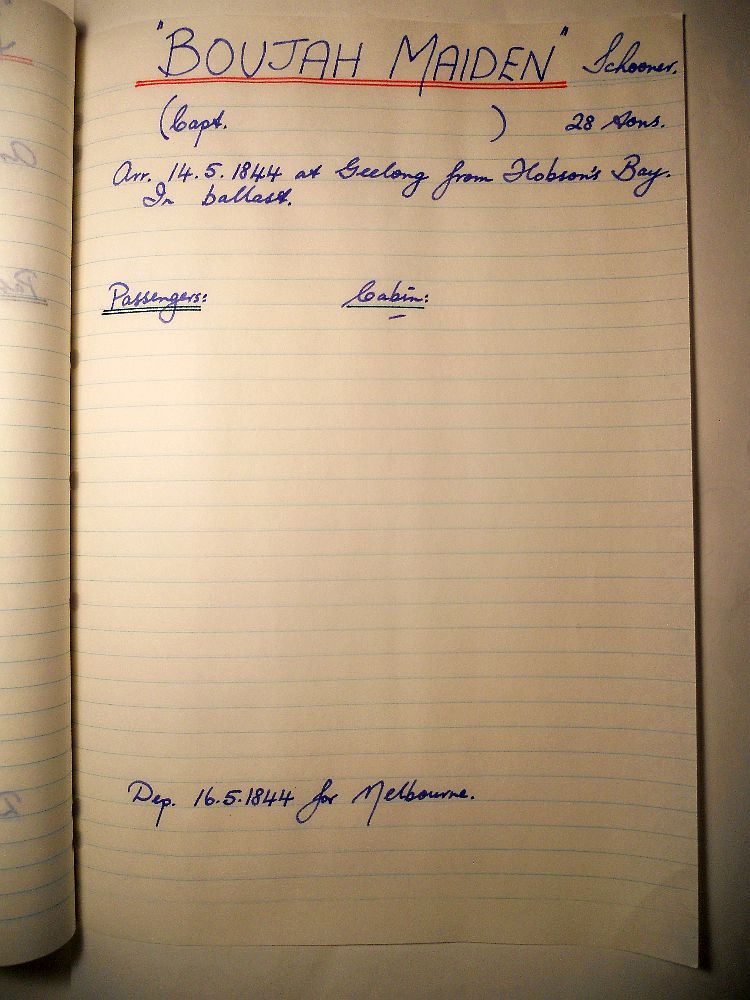 "BOUJAH MAIDEN" Schooner.
(Capt. ) 28 tons.
Arr. 14.5.1844 at Geelong from Hobson's Bay.
In ballast.
Passengers: Cabin:
Dep. 16.5.1844 for Melbourne.